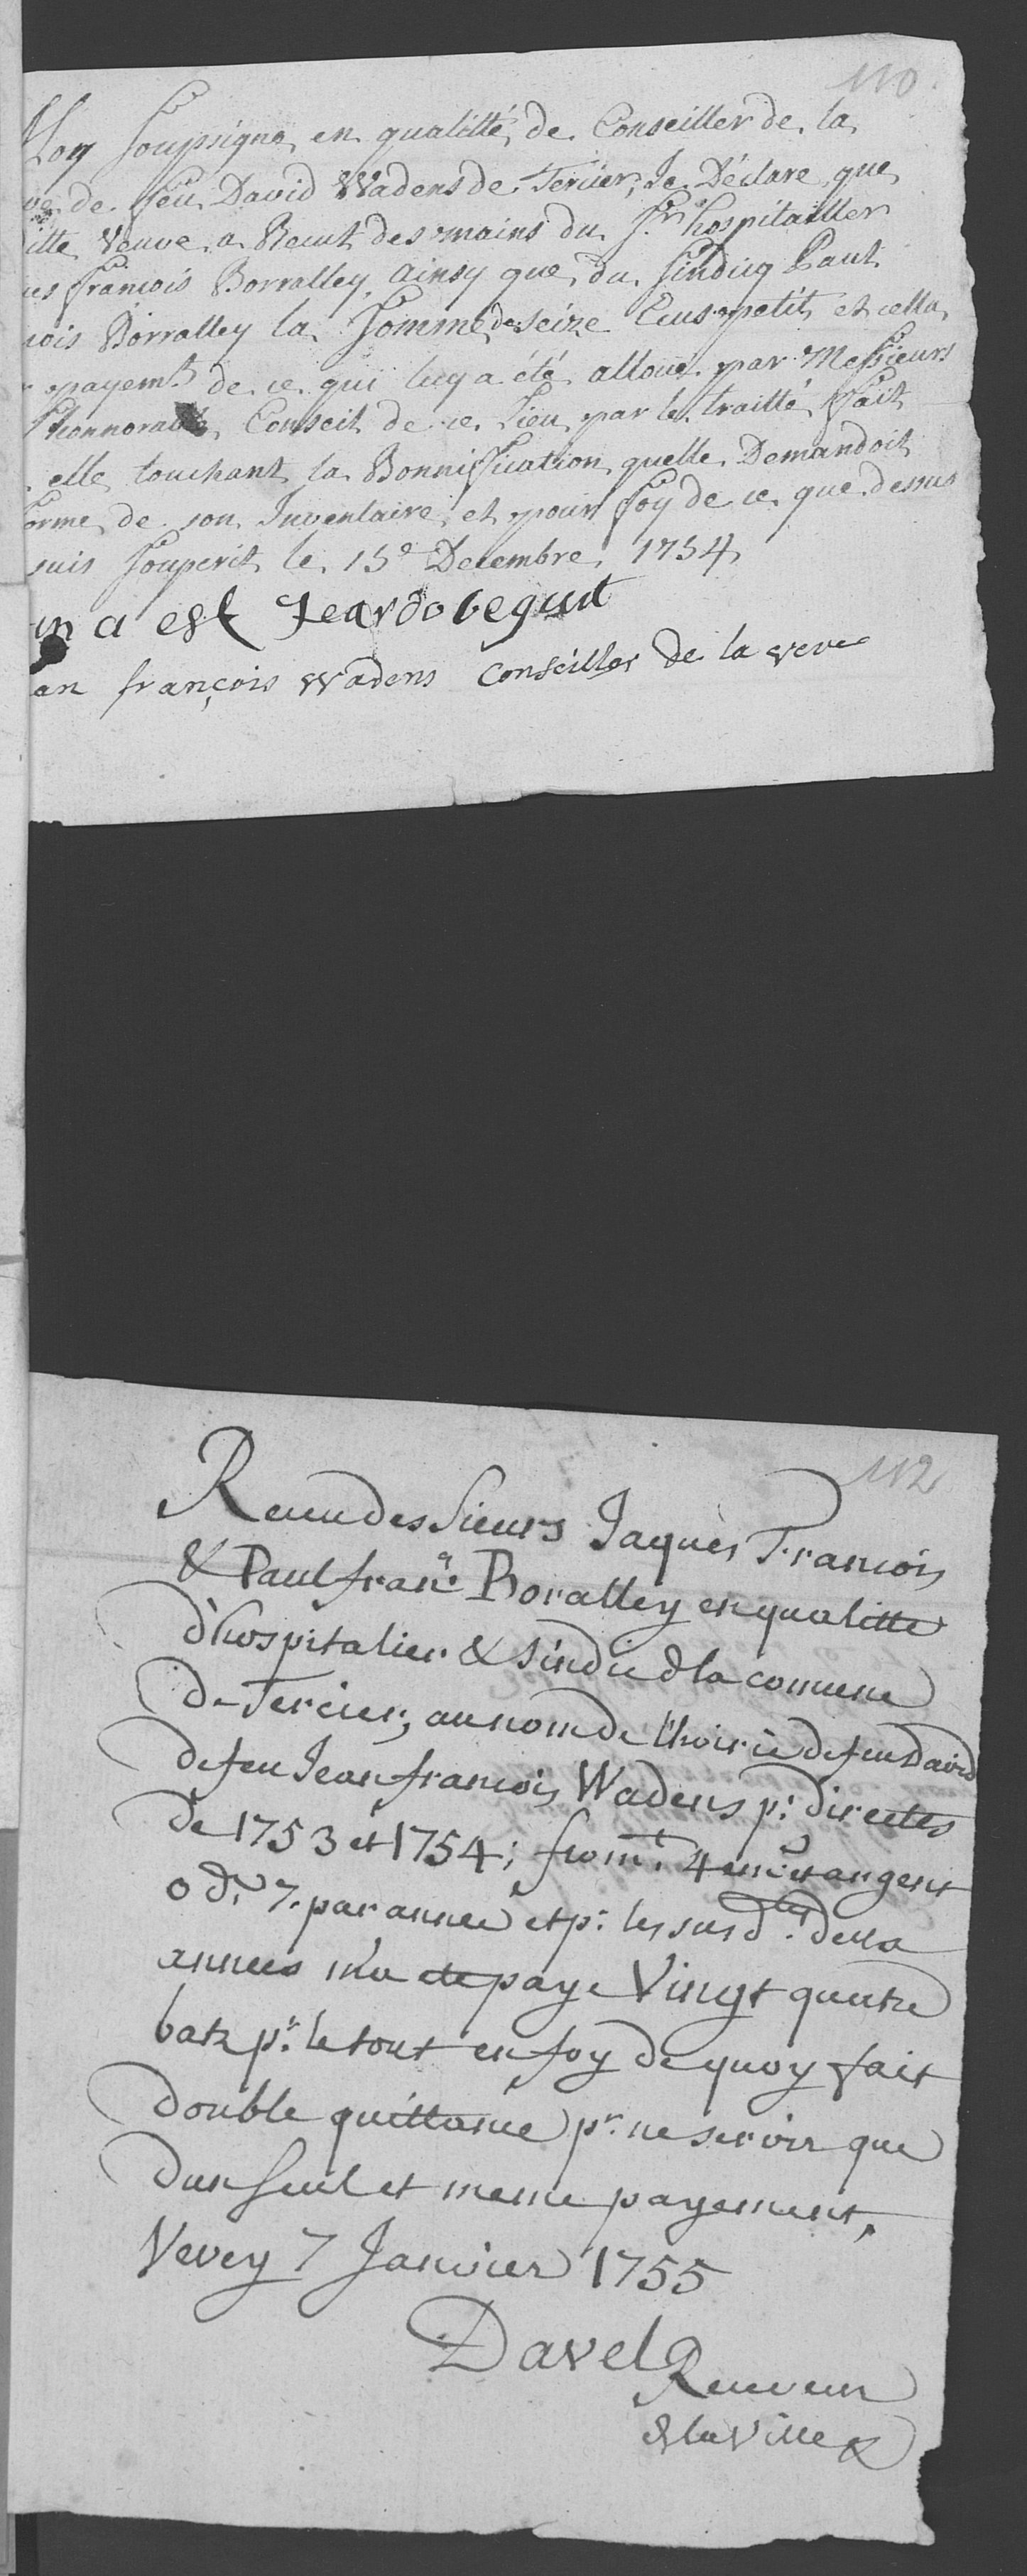 110
Moy Soussigne en qualitté de Conseiller de la
ve de feu David Wadens de Tercier, Je Déclare que
ditte Veuve a Recut des mains du Sr. hospitailler
ues François Borralley, ainsy que du Sindicq Paul
çois Borralley la Somme de seize Ecus petit et cella
payemt. de ce qui luy a été alloué par Messieurs
l'honnorable Conseil de ce Lieu par le traitté fait
elle touchant la Bonniffication quelle Demandoit
forme de son Inventaire, et pour foy de ce que dessus
suis Souscrit le 15e Decembre 1754
an françois Wadens Conseiller de la veve
112
Receu des Sieurs Jaques Francois
& Paul franc. Boralley en qualitte
d'hospitalier & sindic d la comune
de Tercier, au nom de l'hoirie de feu David
de feu Jean francois Wadens pr. directes
de 1753 et 1754; fromt. 4 et argent
7. par année et pr. les susd. deux
années m'a paye Vingt quatre
batz pr. le tout en foy de quoy fait
double quittance pr. ne servir que
d'un seul et meme payement,
Vevey 7 Janvier 1755
Davel
Receveur
d la Ville